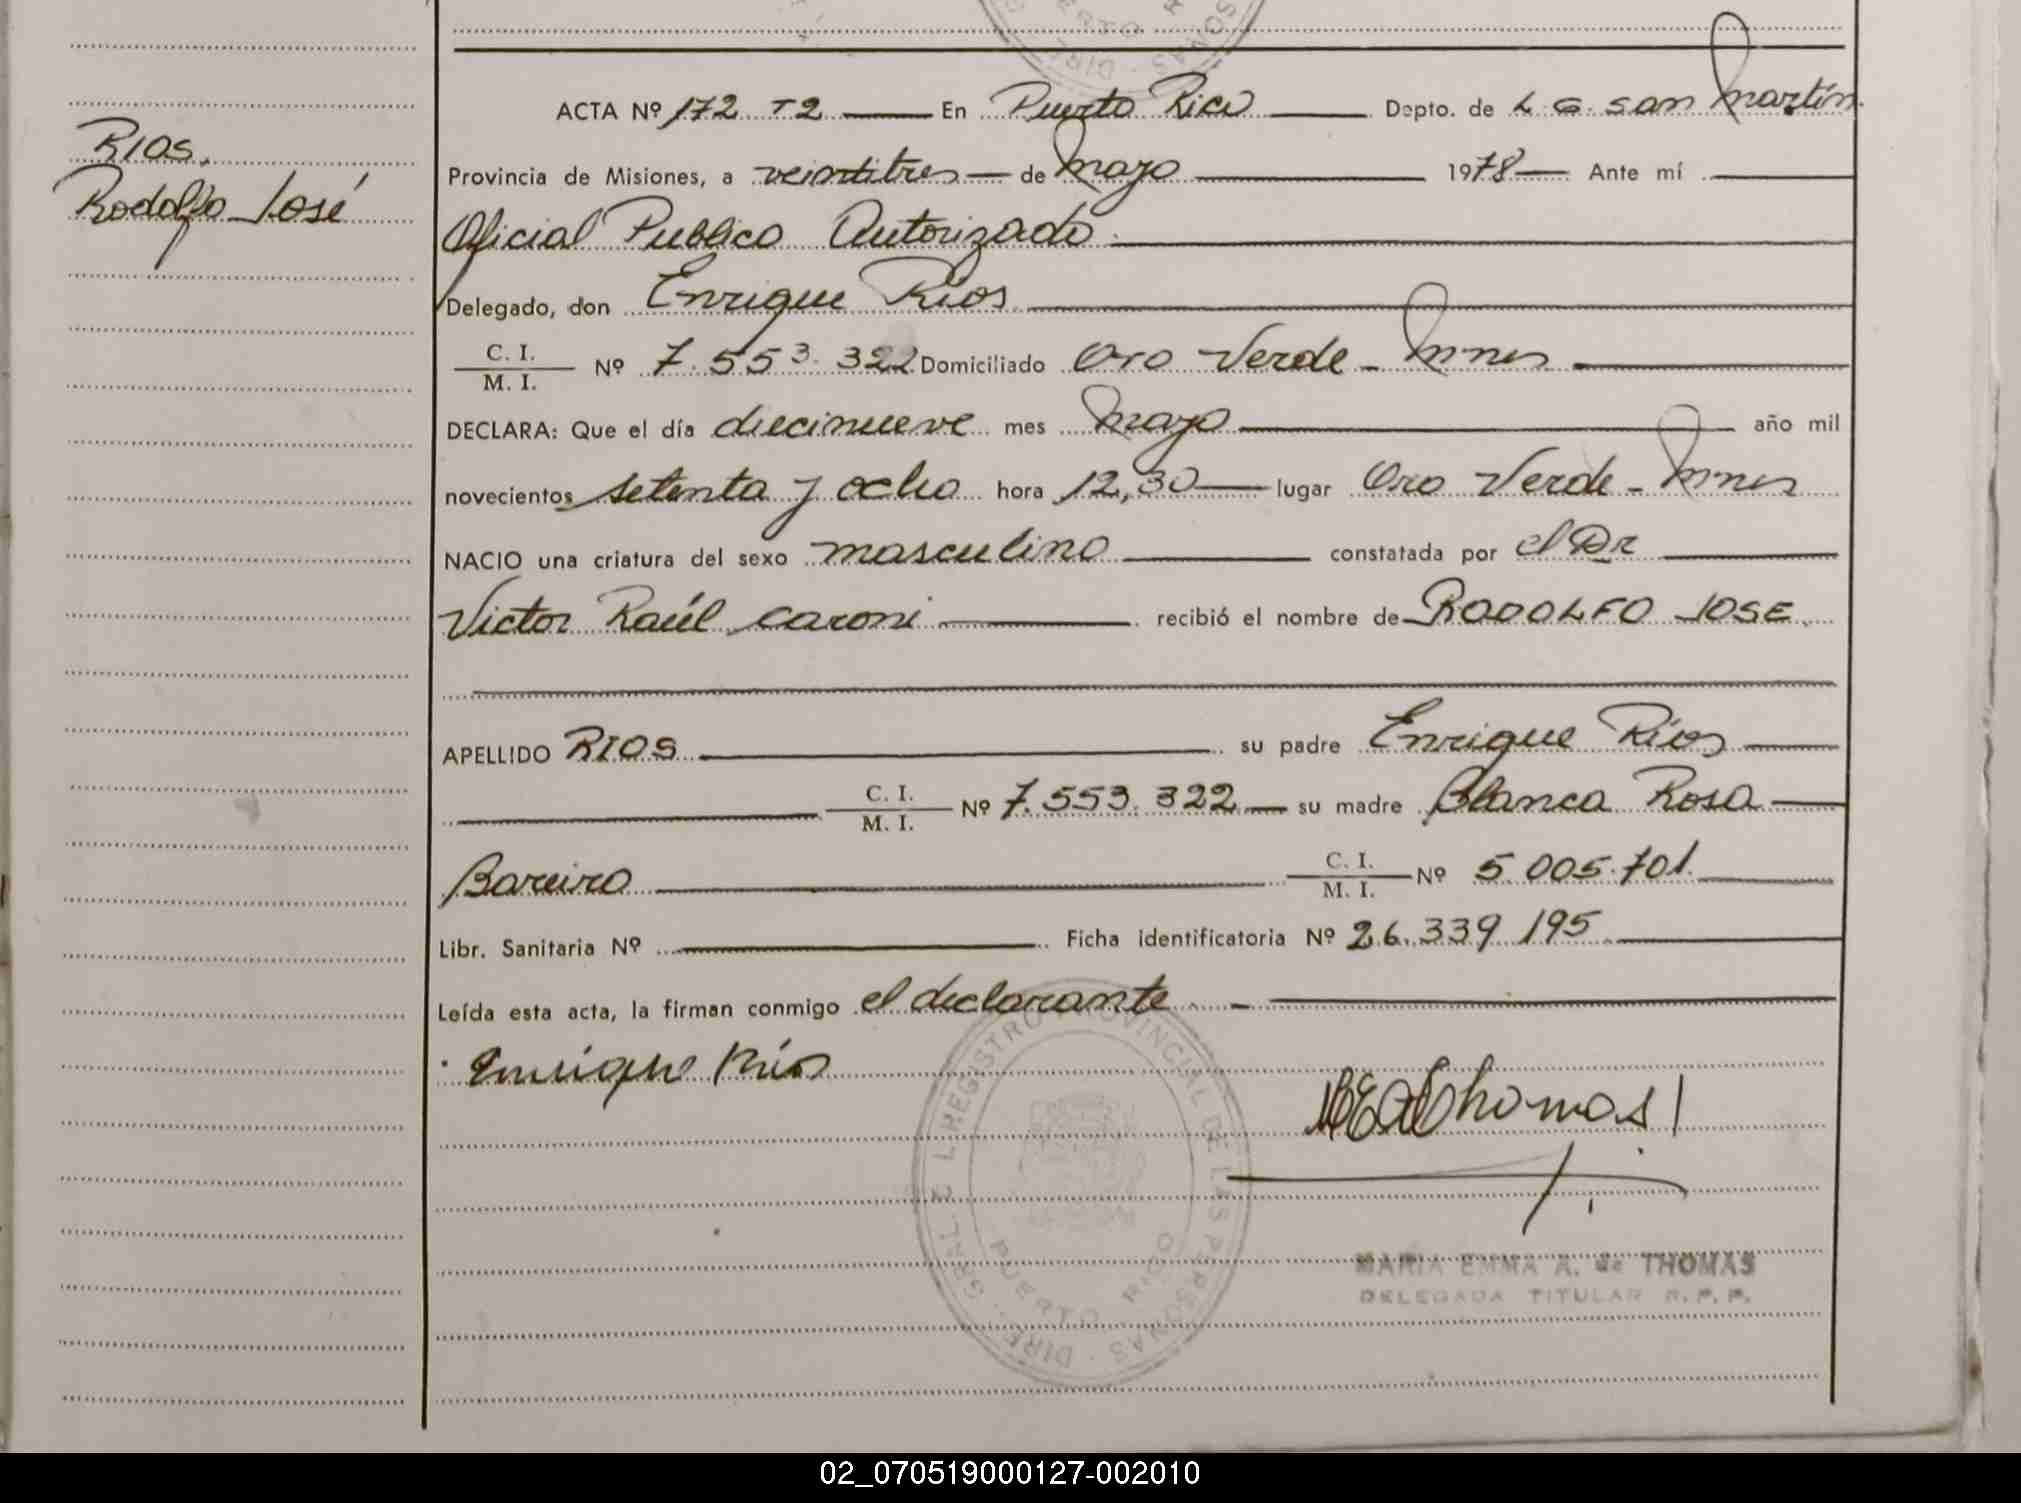 RIOS,
Rodolfo José
ACTA Nº 172 T2 En Puerto Rico Depto. de L G. San Martín.
Provincia de Misiones, a veintitres de Mayo 1978 Ante mí
Oficial Publico Autorizado.
Delegado, don Enrique Ríos
C. I.
M. I. Nº 7.553.322 Domiciliado Oro Verde - Mnes
DECLARA: Que el día diecinueve mes Mayo año mil
novecientos setenta y ocho hora 12,30 lugar Oro Verde - Mnes
NACIO una criatura del sexo masculino constatada por el Dr
Victor Raúl Caroni recibió el nombre de RODOLFO JOSE
APELLIDO RIOS su padre Enrique Ríos
C. I.
M. I. Nº 7.553.322 su madre Blanca Rosa
Bareiro C. I.
M. I. Nº 5.005.701.
Libr. Sanitaria Nº Ficha identificatoria Nº 26.339.195
Leída esta acta, la firman conmigo el declarante
Enrique Ríos
MEAThomas
MARIA EMMA A. de THOMAS
DELEGADA TITULAR R. P. P.
PROVINCIAL DE LAS PERSONAS
PUERTO RICO
02_070519000127-002010